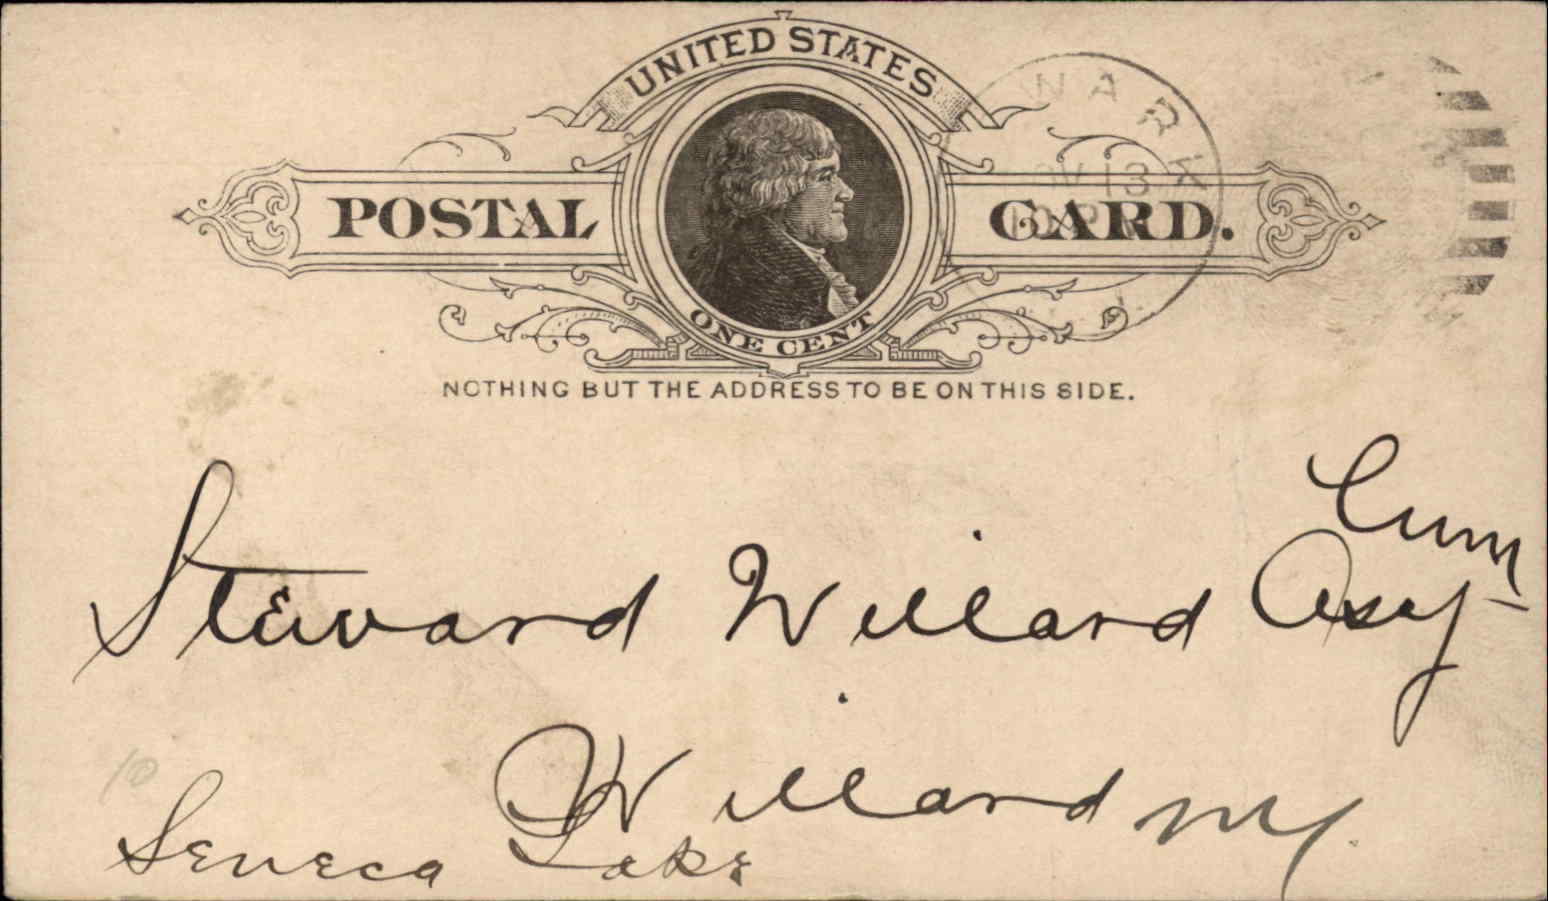 UNITED STATES
POSTAL CARD.
ONE CENT
NOTHING BUT THE ADDRESS TO BE ON THIS SIDE.
WARK
13
Steward Willard Asy
Willard NY.
Seneca Lake
10